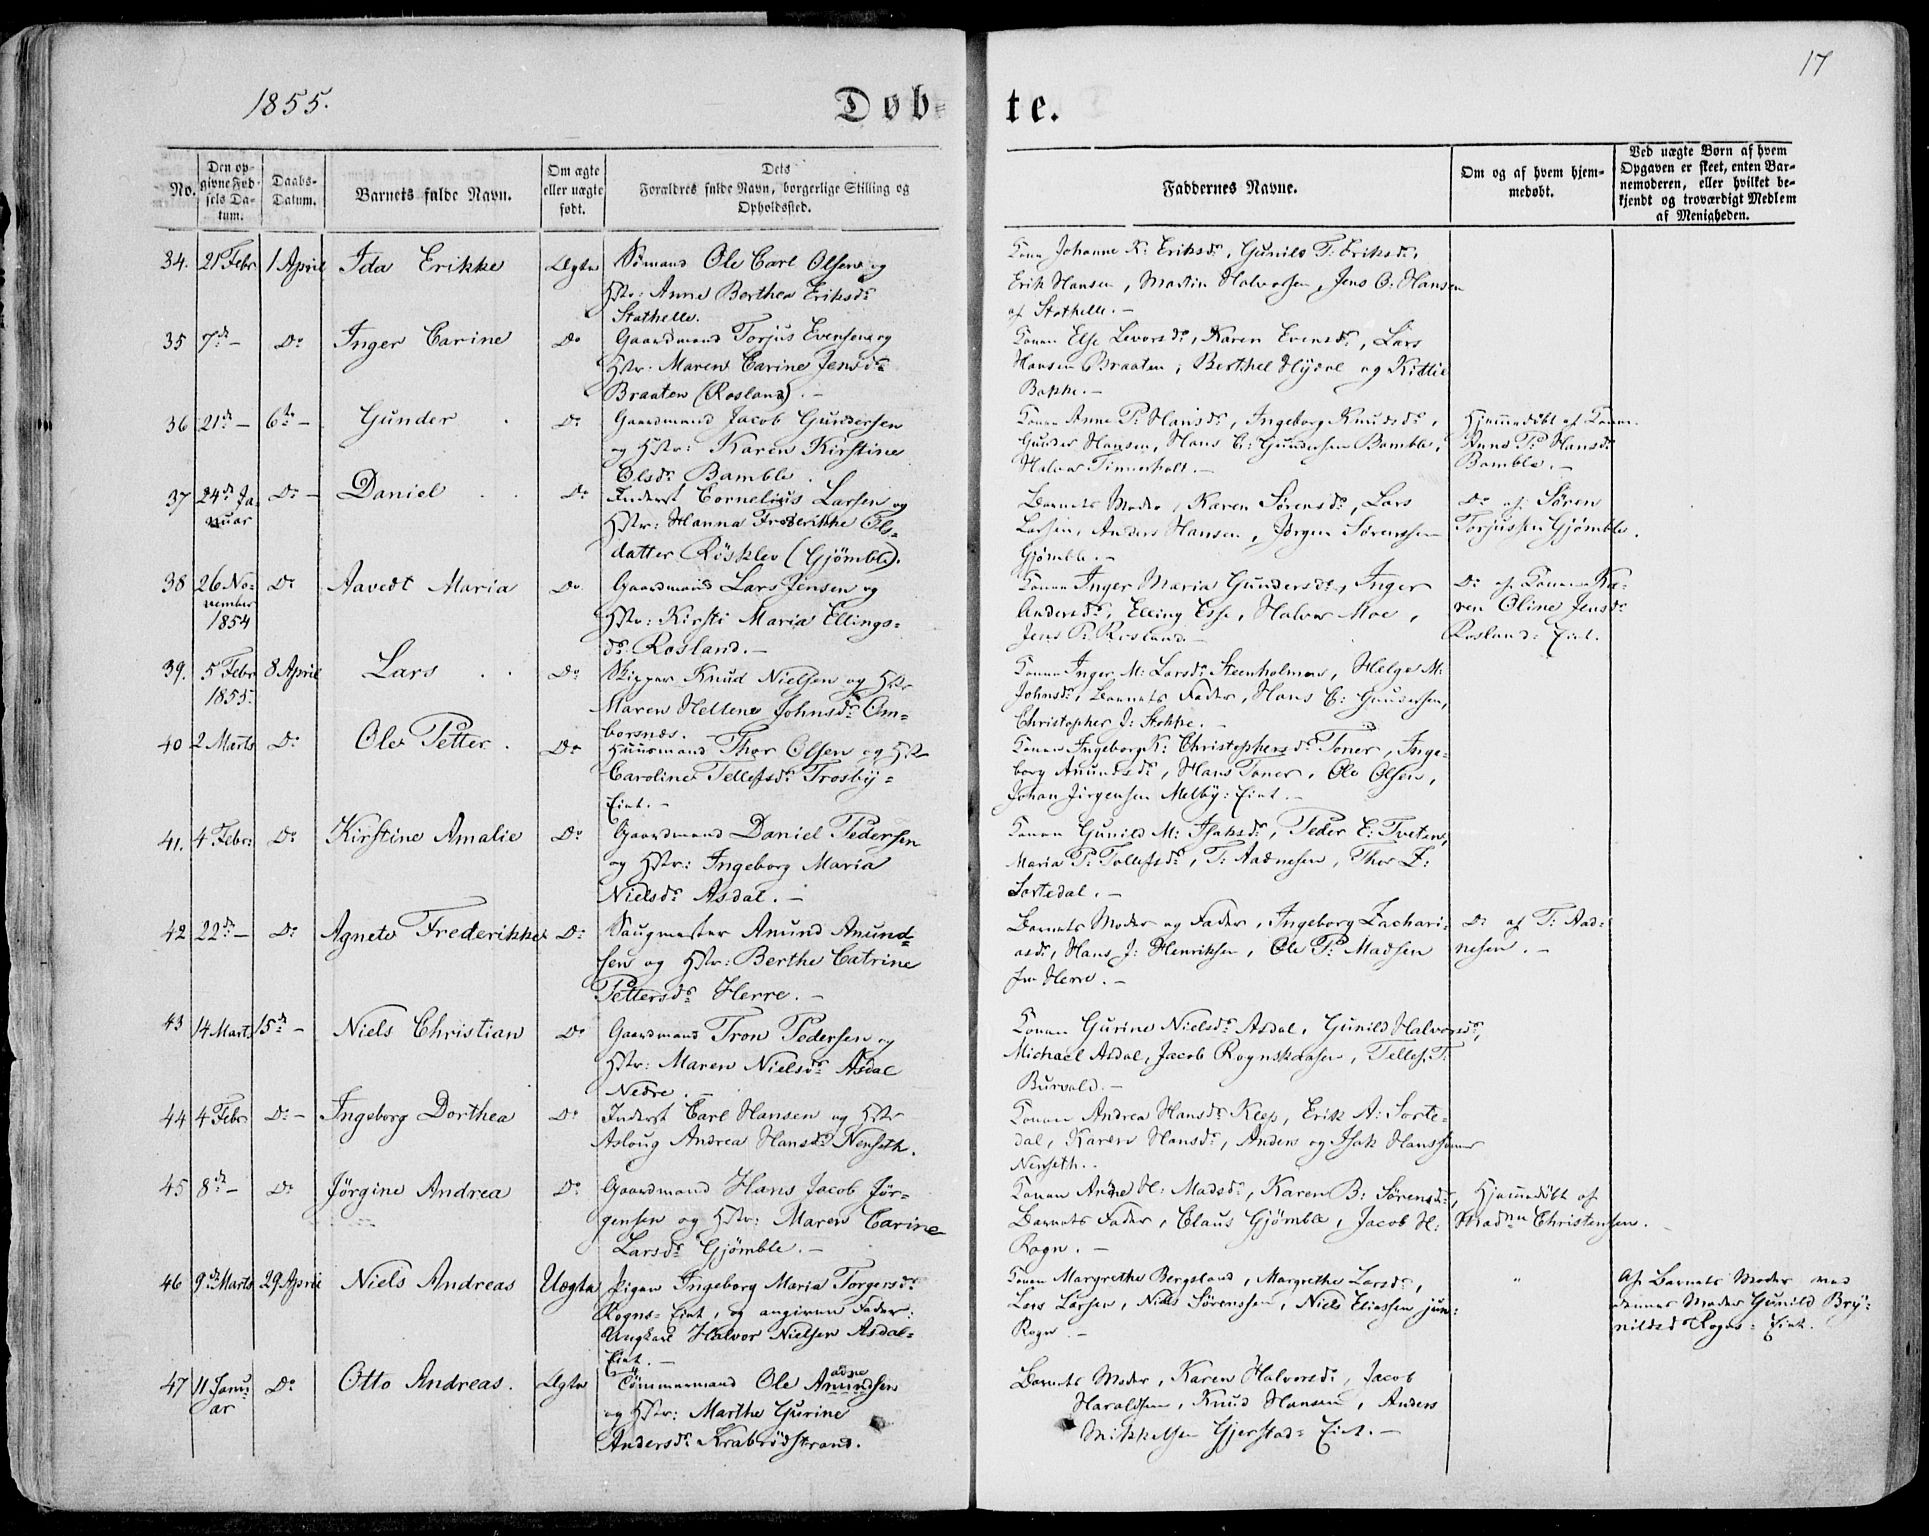 17
1855.
Døb-
te.
No.
Den op-
givne Fød-
sels Da-
tum.
Daabs-
Datum.
Barnets fulde Navn.
Om ægte
eller uægte
født.
Dets
Forældres fulde Navn, borgerlige Stilling og
Opholdssted.
Faddernes Navne.
Om og af hvem hjem-
medøbt.
Ved uægte Børn af hvem
Opgaven er skeet, enten Bar-
nemoderen, eller hvilket be-
kjendt og troværdigt Medlem
af Menigheden.
34. 21 Febr 1 April Ida Erikke Ægte Sømand Ole Carl Olsen og
Hstr: Anne Berthea Eriksdr
Stathelle.
Konen Johanne K: Eriksdr, Gunild T: Eriksdr,
Erik Hansen, Martin Halvorsen, Jens C: Hansen
af Stathelle.-
35 7de - Do Inger Carine Do Gaardmand Torjus Evensen og
Hstr. Maren Carine Jensdr
Braaten (Rosland).-
Konen Else Levorsdr, Karen Evensdr, Lars
Hansen Braaten, Berthel Hydal og Kittil
Bakke.-
36 21de - 6te - Gunder Do Gaardmand Jacob Gundersen
og Hstr: Karen Kirstine
Olsdr Bamble.
Konen Anne P: Hansdr, Ingeborg Knudsdr,
Gunder Hansen, Hans C: Gundersen Bamble,
Halvor Tinnerholt.-
Hjemmedøbt af Konen
Anne P: Hansdr
Bamble.-
37 24de Ja-
nuar Do - Daniel Do Inderst Cornelius Larsen og
Hstr: Hanna Frederikke Ols-
datter Rösklev (Gjømble).
Barnets Moder, Karen Sørensdr, Lars
Larsen, Anders Hansen, Jørgen Sørenssen
Gjømble.-
Do af Søren
Torjussen Gjømble.
38 26 No-
vember
1854 Do Aavedt Maria Do Gaardmand Lars Jensen og
Hstr: Kirsti Maria Ellings-
dr Rosland.-
Konen Inger Maria Gundersdr, Inger
Andersdr, Elling Esse, Halvor Moe,
Jens P: Rosland.
Do af Konen Ka-
ren Oline Jensdr
Rosland: Eiet.
39. 5 Febr
1855. 8 April Lars Do Skipper Knud Nielsen og Hstr
Maren Hellene Johnsdr Om-
borsnæs.
Konen Inger M: Larsdr Steenholmen, Helge M:
Johnsdr, Barnets Fader, Hans C: Gundersen,
Christopher J: Stokke.-
40 2 Marts Do Ole Petter. Do Huusmand Thor Olsen og Hstr
Caroline Tellefsdr Trosby-
Eiet.-
Konen Ingeborg K: Christophersdr Toner, Inge-
borg Amundsdr, Hans Toner, Ole Olsen,
Johan Jørgensen Melby: Eiet.-
41. 4 Febr: Do Kirstine Amalie Do Gaardmand Daniel Pedersen
og Hstr: Ingeborg Maria
Nielsdr Asdal.-
Konen Gunild M: Isaksdr, Peder E: Tveten,
Maria P: Tollefsdr, T: Aadnesen, Thor E:
Sortedal.-
42 22de - Do Agnete Frederikke Do Saugmester Amund Amund-
sen og Hstr: Berthe Catrine
Pettersdr Herre.-
Barnets Moder og Fader, Ingeborg Zachari-
asdr, Hans J: Henriksen, Ole P: Madsen
fra Herre.-
Do af T: Aad-
nesen.-
43 14 Marts 15de - Niels Christian Do Gaardmand Tron Pedersen og
Hstr: Maren Nielsdr Asdal
Nedre.
Konen Gurine Nielsdr Asdal, Gunild Halvorsdr,
Michael Asdal, Jacob Rognskaasen, Tellef T:
Burvald.-
44 4 Febr Do - Ingeborg Dorthea Do Inderst Carl Hansen og Hstr
Aslaug Andrea Hansdr Nenseth.
Konen Andrea Hansdr Kleep, Erik A: Sorte-
dal, Karen Hansdr, Anders og Isak Hanssønner
Nenseth.
45 8de - Do Jørgine Andrea Do Gaardmand Hans Jacob Jør-
gensen og Hstr: Maren Carine
Larsdr Gjømble.-
Konen Andre H: Madsdr, Karen B: Sørensdr,
Barnets Fader, Claus Gjømble, Jacob H:
Rogn.-
Hjemmedøbt af
Madme Christensen.
46 9de Marts 29 April Niels Andreas Uægte Pigen Ingeborg Maria Torgersdr
Rogns-Eiet, og angiven Fader:
Ungkarl Halvor Nielsen Asdal-
Eiet.-
Konen Margrethe Bergsland, Margrethe Larsdr,
Lars Larsen, Niels Sørenssen, Niels Eliassen jun:
Rogn.-
"
Af Barnets Moder med
dennes Moder Gunild Bry-
nildsd Rogns-Eiet.
47 11 Janu-
ar Do Otto Andreas. Ægte Tømmermand Ole Amundsen
og Hstr: Marthe Gurine
Andersdr Krabrödstrand.
Barnets Moder, Karen Halvorsdr, Jacob
Haraldsen, Knud Hansen, Anders
Mikkelsen Gjerstad-Eiet.-